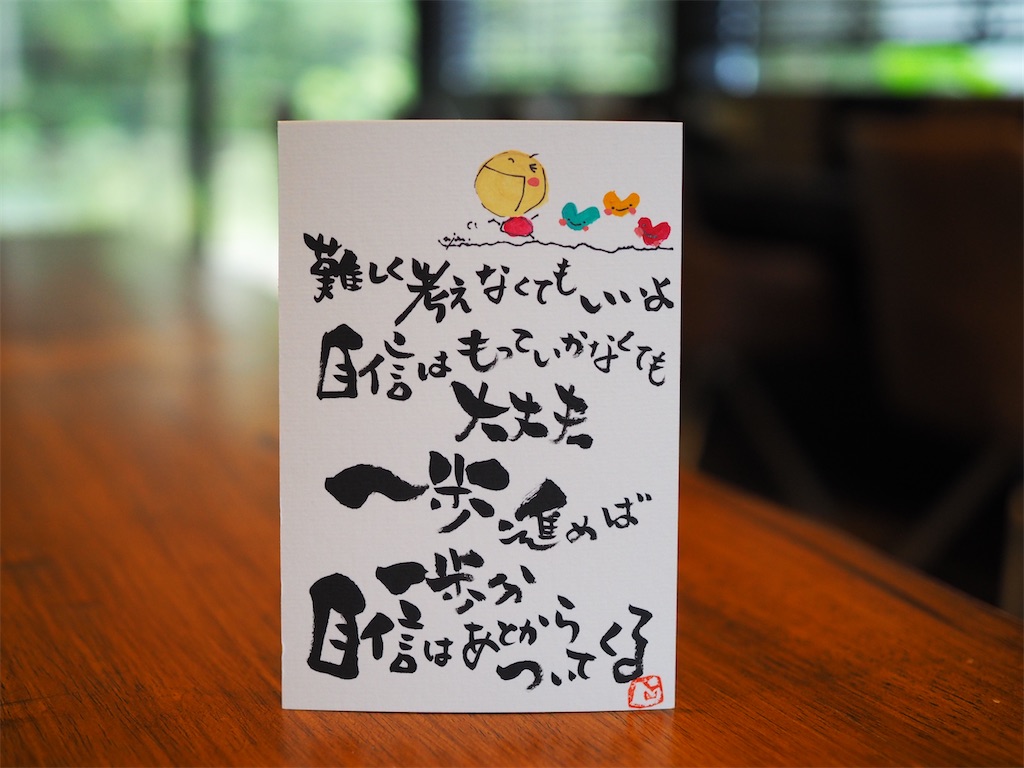 難しく考えなくてもいいよ
自信はもっていかなくても
大丈夫
一歩進めば
一歩分
自信はあとから
ついてくる